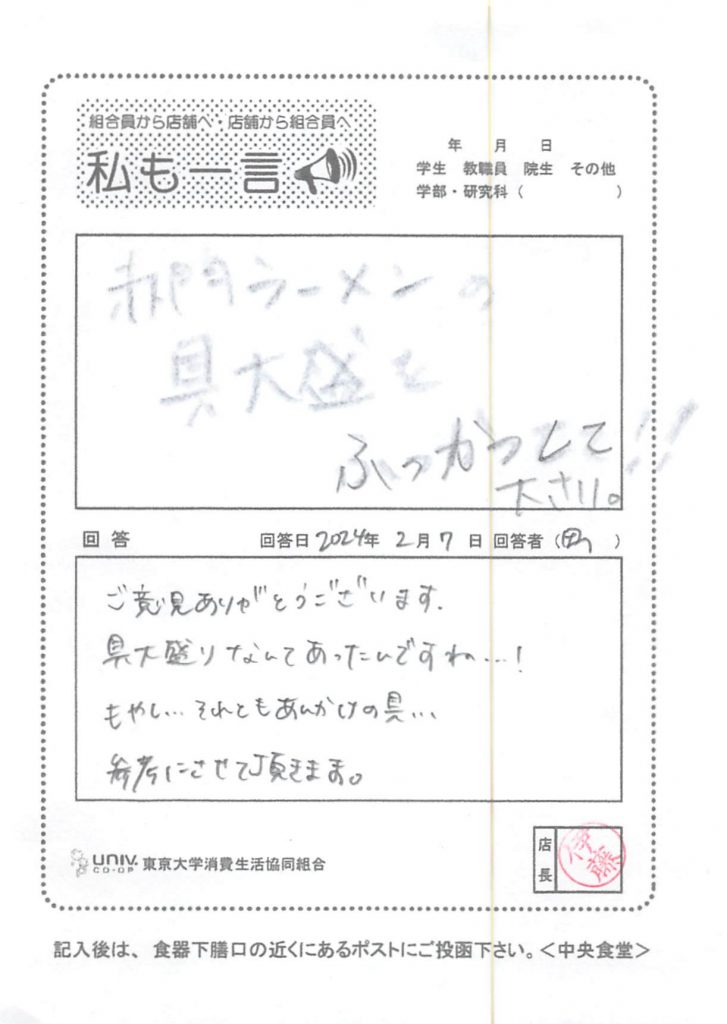 組合員から店舗へ・店舗から組合員へ
私も一言
年 月 日
学生 教職員 院生 その他
学部・研究科（ ）
赤門ラーメンの
具大盛を
ふっかつして!!
下さい。
回答 回答日 2024年 2月 7日 回答者（ ）
ご意見ありがとうございます.
具大盛りなんてあったんですね…!
もやし…それともあんかけの具…
参考にさせて頂きます。
店長 伊藤
UNIV. CO-OP 東京大学消費生活協同組合
記入後は、食器下膳口の近くにあるポストにご投函下さい。＜中央食堂＞